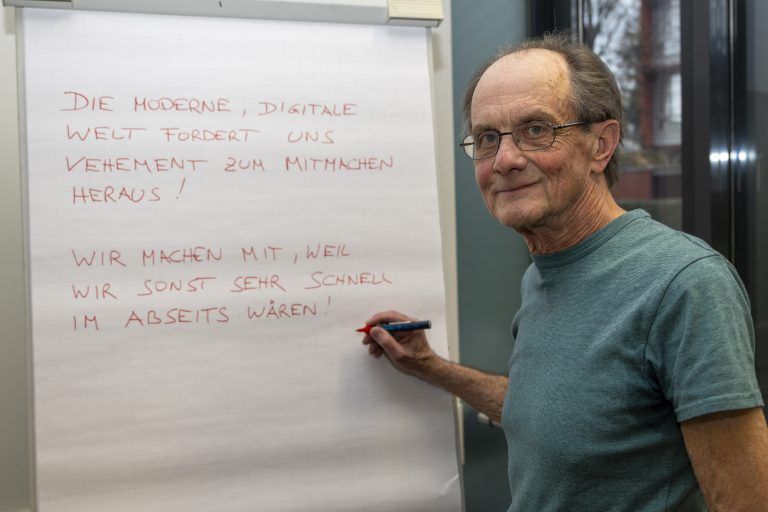 DIE MODERNE, DIGITALE
WELT FORDERT UNS
VEHEMENT ZUM MITMACHEN
HERAUS!
WIR MACHEN MIT, WEIL
WIR SONST SEHR SCHNELL
IM ABSEITS WÄREN!